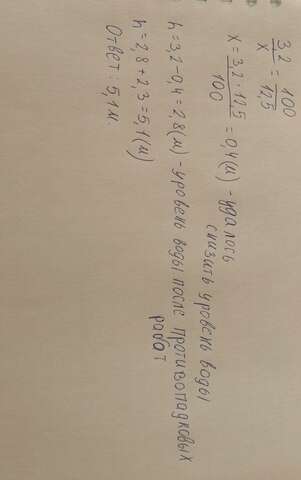 3,2/x = 100/12,5
x = 3,2 · 12,5/100 = 0,4 (м) - удалось
снизить уровень воды
h = 3,2 - 0,4 = 2,8 (м) - уровень воды после противопадковых
работ
h = 2,8 + 2,3 = 5,1 (м)
Ответ: 5,1 м.